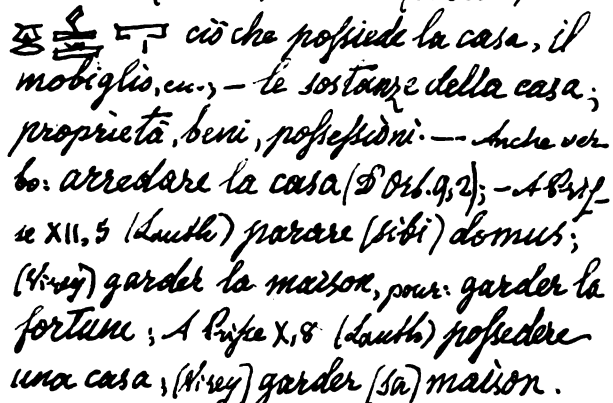 ciò che possiede la casa, il
mobiglio, ecc.; – le sostanze della casa;
proprietà, beni, possessioni. — Anche ver
bo: arredare la casa (D'Orb. 9, 2); – A Pris_
se XII, 5 (Lauth) parare (sibi) domus;
(Virey) garder la maison, pour: garder la
fortune; A Prisse X, 8 (Lauth) possedere
una casa; (Virey) garder (sa) maison.